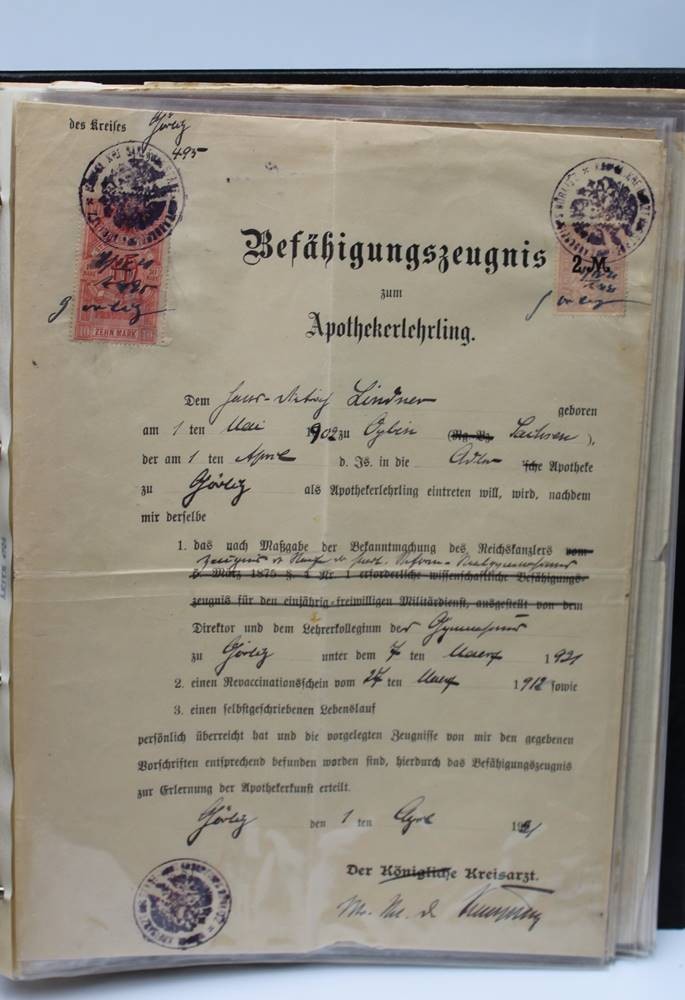 des Kreises Görlitz
495
Befähigungszeugnis
zum
Apothekerlehrling.
2 M.
ZEHN MARK
Dem Lindner geboren
am 1 ten Mai 1902 zu Oybin (Rg.-Bz. Sachsen),
der am 1 ten April d. Js. in die Adler 'sche Apotheke
zu Görlitz als Apothekerlehrling eintreten will, wird, nachdem
mir derselbe
1. das nach Maßgabe der Bekanntmachung des Reichskanzlers vom
5. März 1875 § 4 Nr 1 erforderliche wissenschaftliche Befähigungs-
zeugnis für den einjährig-freiwilligen Militärdienst, ausgestellt von dem
Direktor und dem Lehrerkollegium der Gymnasiums
zu Görlitz unter dem 7 ten Maerz 1921
2. einen Revaccinationsschein vom 27 ten Maerz 1912 sowie
3. einen selbstgeschriebenen Lebenslauf
persönlich überreicht hat und die vorgelegten Zeugnisse von mir den gegebenen
Vorschriften entsprechend befunden worden sind, hierdurch das Befähigungszeugnis
zur Erlernung der Apothekerkunst erteilt.
Görlitz den 1 ten April 1921
Der Königliche Kreisarzt.